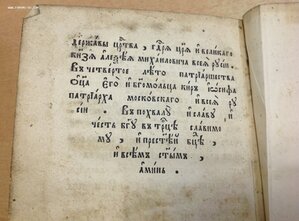 державы црⷭ҇тва, гдⷭ҇ря цр҃я и҆ великаго
кн҃зя алеѯѣя михаиловича всея руⷭ҇іи.
Въ четвертое лѣто патріаршества
ѻ҆ц҃а є҆гѡ̀ и҆ бг҃омольца кирⸯ іѡсифа
патріарха московскаго и҆ всея рꙋ
сіи Въ похвалꙋ и҆ славꙋ и҆
честь бг҃ꙋ въ трⷪ҇цѣ славимо
мꙋ, и҆ прⷭ҇тѣи бцⷣѣ,
и҆ всѣмъ ст҃ымъ,
а҆минь.